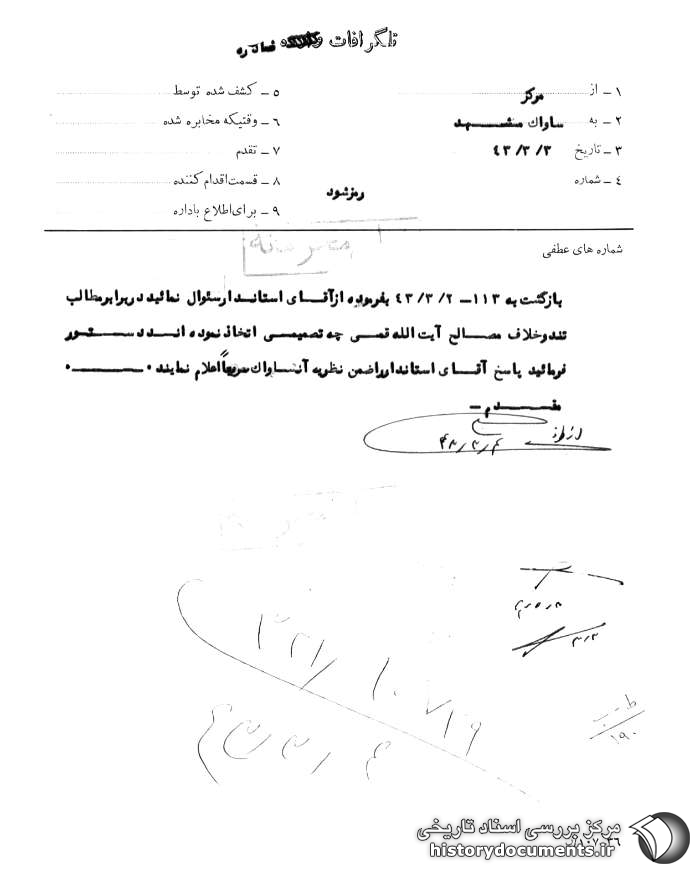 تلگرافات صادره
۱ ـ از مرکز
۲ ـ به ساواک مشهد
۳ ـ تاریخ ۴۳/۳/۳
۴ ـ شماره
۵ ـ کشف شده توسط
۶ ـ وقتیکه مخابره شده
۷ ـ تقدم
۸ ـ قسمت اقدام کننده
۹ ـ برای اطلاع باداره
رمز شود
شماره های عطفی
محرمانه
بازگشت به ۱۱۳ ـ ۴۳/۳/۲ بفرموده از آقای استاندار سئوال نمائید در برابر مطالب
تند و خلاف مصالح آیت الله قمی چه تصمیمی اتخاذ نموده اند دستور
فرمائید پاسخ آقای استاندار را ضمن نظریه آن ساواک سریعاً اعلام نمایند ۰ ــــــ ۰
مقدم ـ
۴۳/۳/۴
۳/۳
۳۲۱/۱۰۷۱۹
۱۹۰
مرکز بررسی اسناد تاریخی
historydocuments.ir